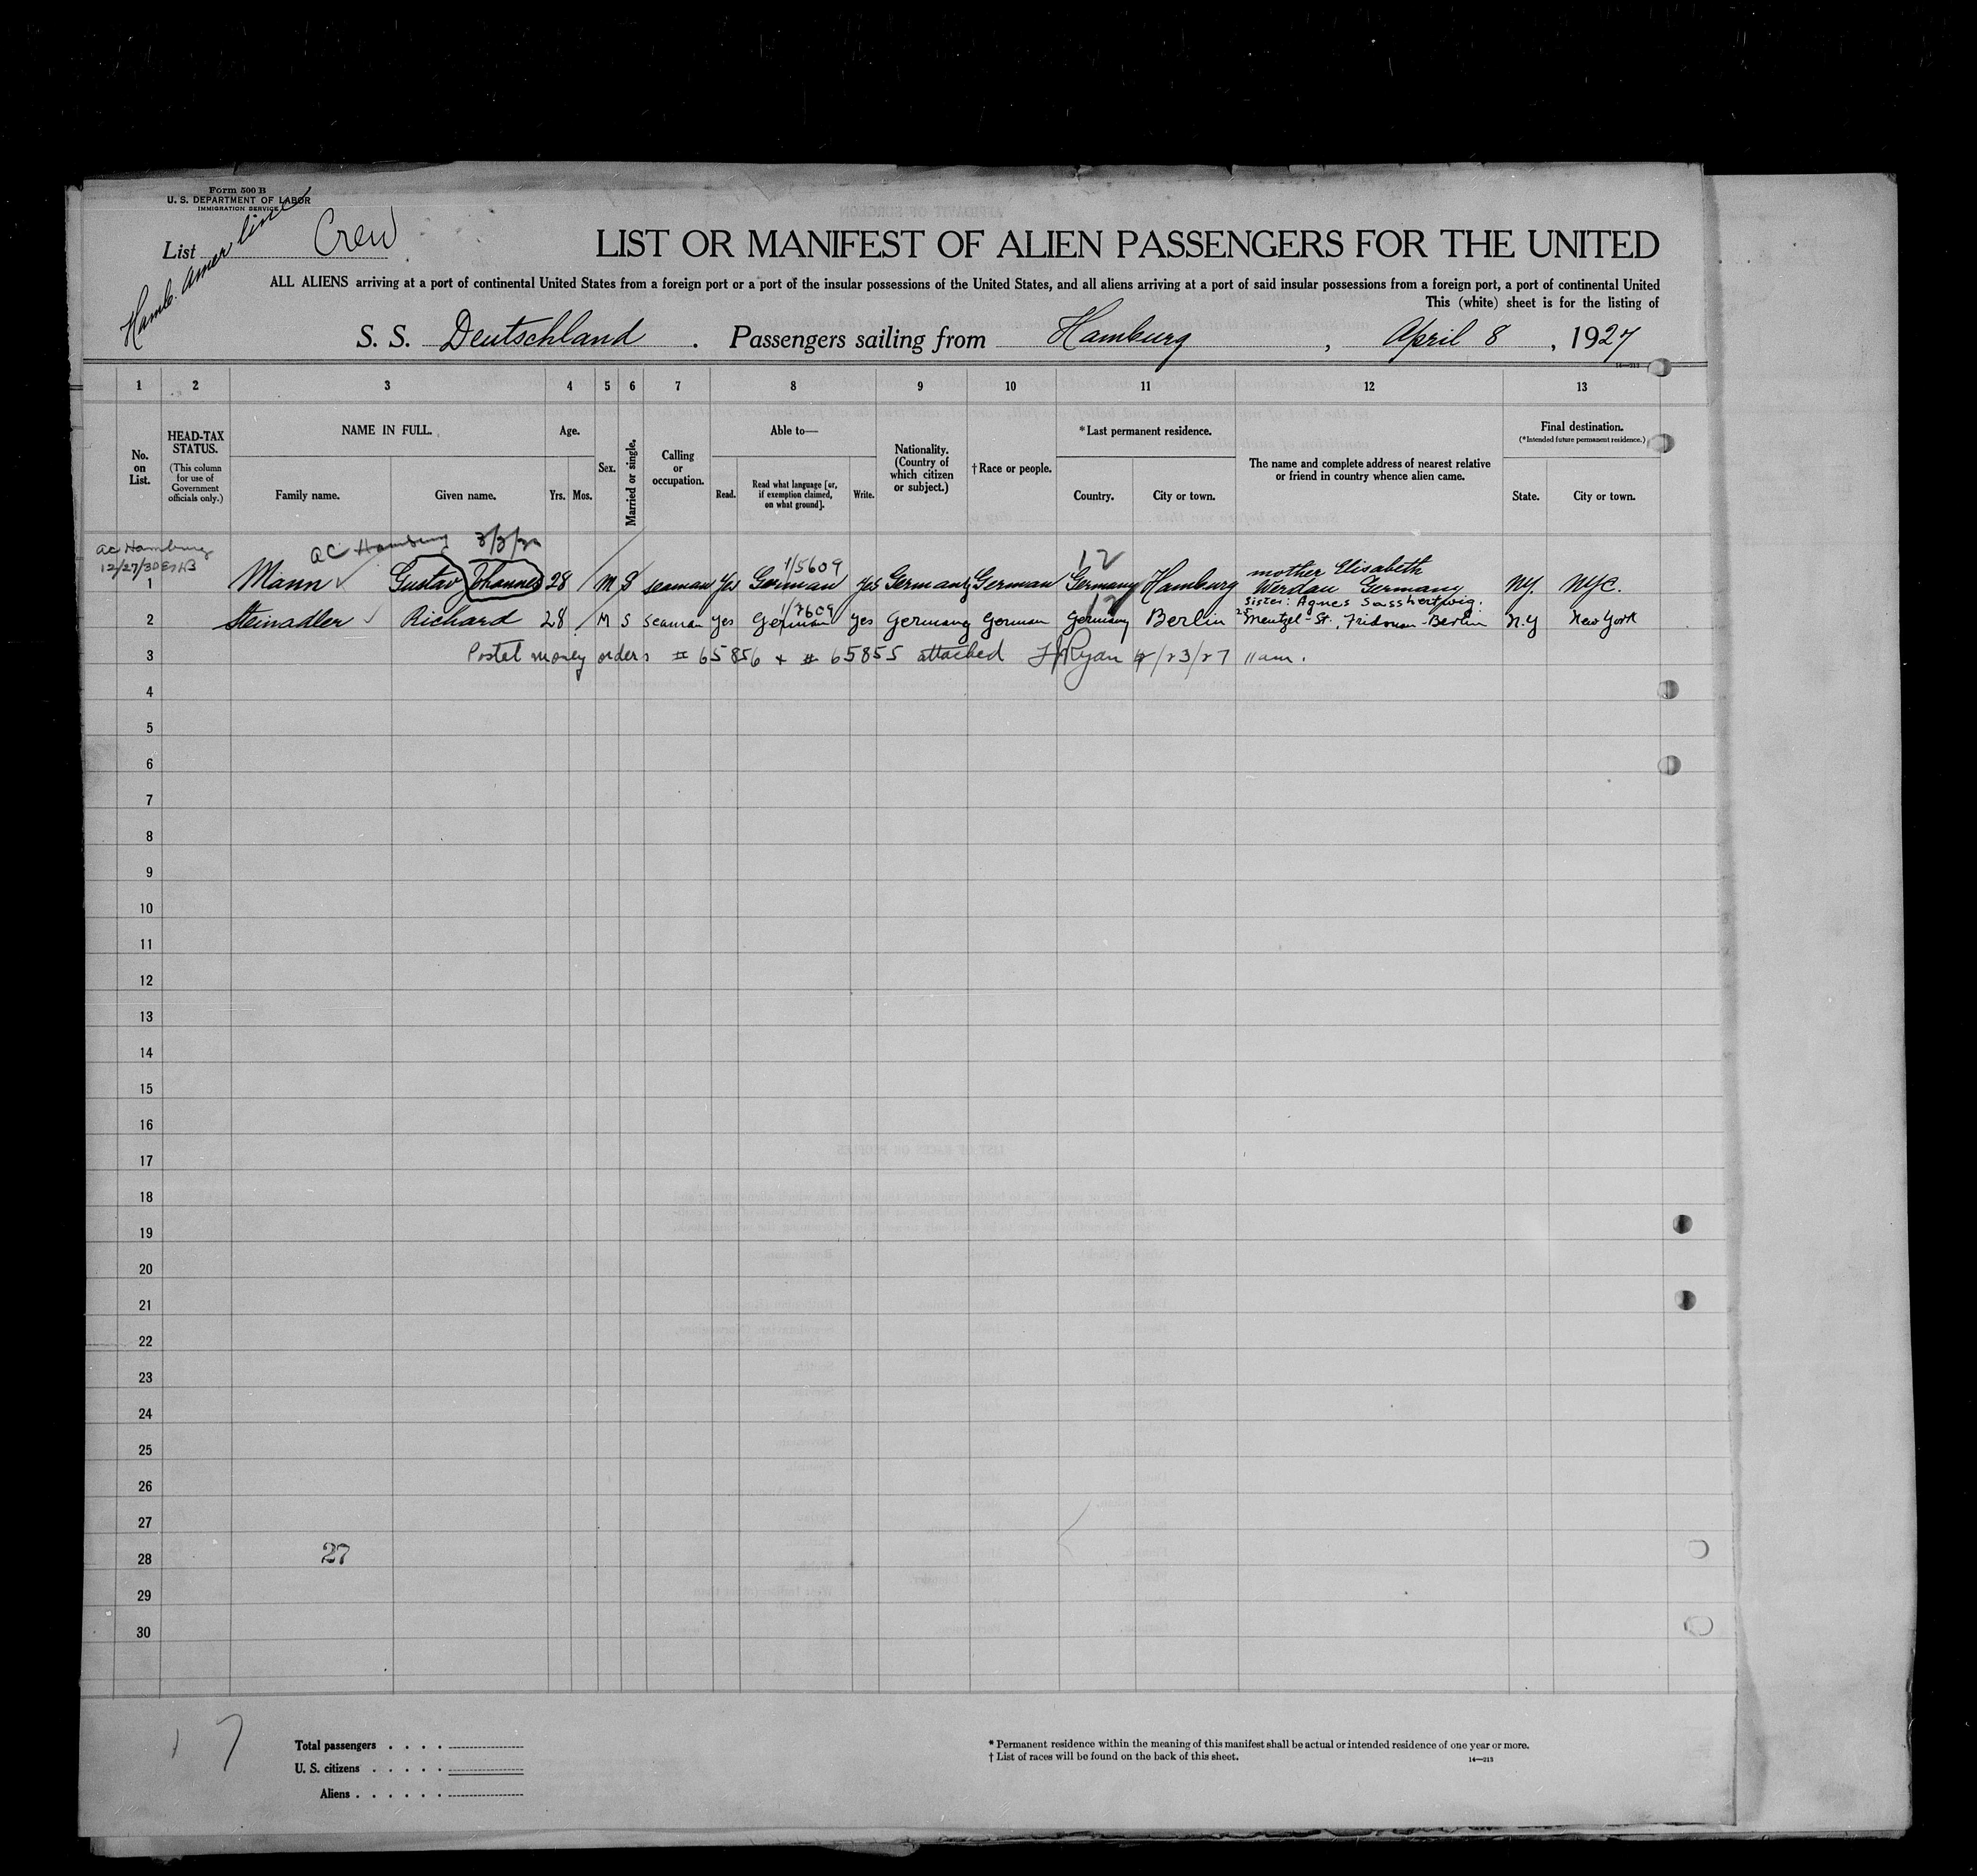 Form 500 B
U. S. DEPARTMENT OF LABOR
IMMIGRATION SERVICE
List Crew
Hamb. Amer line
LIST OR MANIFEST OF ALIEN PASSENGERS FOR THE UNITED
ALL ALIENS arriving at a port of continental United States from a foreign port or a port of the insular possessions of the United States, and all aliens arriving at a port of said insular possessions from a foreign port, a port of continental United
This (white) sheet is for the listing of
S. S. Deutschland . Passengers sailing from Hamburg , April 8 , 1927
14—213
1 2 3 4 5 6 7 8 9 10 11 12 13
No. on List.
HEAD-TAX STATUS.
(This column for use of Government officials only.)
NAME IN FULL.
Family name. Given name.
Age.
Yrs. Mos.
Sex.
Married or single.
Calling or occupation.
Able to—
Read. Read what language [or, if exemption claimed, on what ground]. Write.
Nationality. (Country of which citizen or subject.)
†Race or people.
*Last permanent residence.
Country. City or town.
The name and complete address of nearest relative or friend in country whence alien came.
Final destination.
(*Intended future permanent residence.)
State. City or town.
ac Hamburg
12/27/30
AC Hamburg
1/5609
12
mother Elisabeth
1 Mann Gustav Johannes 28 M S seaman Yes German yes Germany German Germany Hamburg Werdau Germany NY. NYC.
12
Sister: Agnes
2 Steinadler Richard 28 M S seaman yes German yes Germany German Germany Berlin Mentzel-St. Berlin N.Y New York
3 Postal money orders # 65856 + # 65855 attached Ryan 4/23/27 11 am.
4
5
6
7
8
9
10
11
12
13
14
15
16
17
18
19
20
21
22
23
24
25
26
27
28 27
29
30
17
Total passengers
U. S. citizens
Aliens
* Permanent residence within the meaning of this manifest shall be actual or intended residence of one year or more.
† List of races will be found on the back of this sheet.
14—213